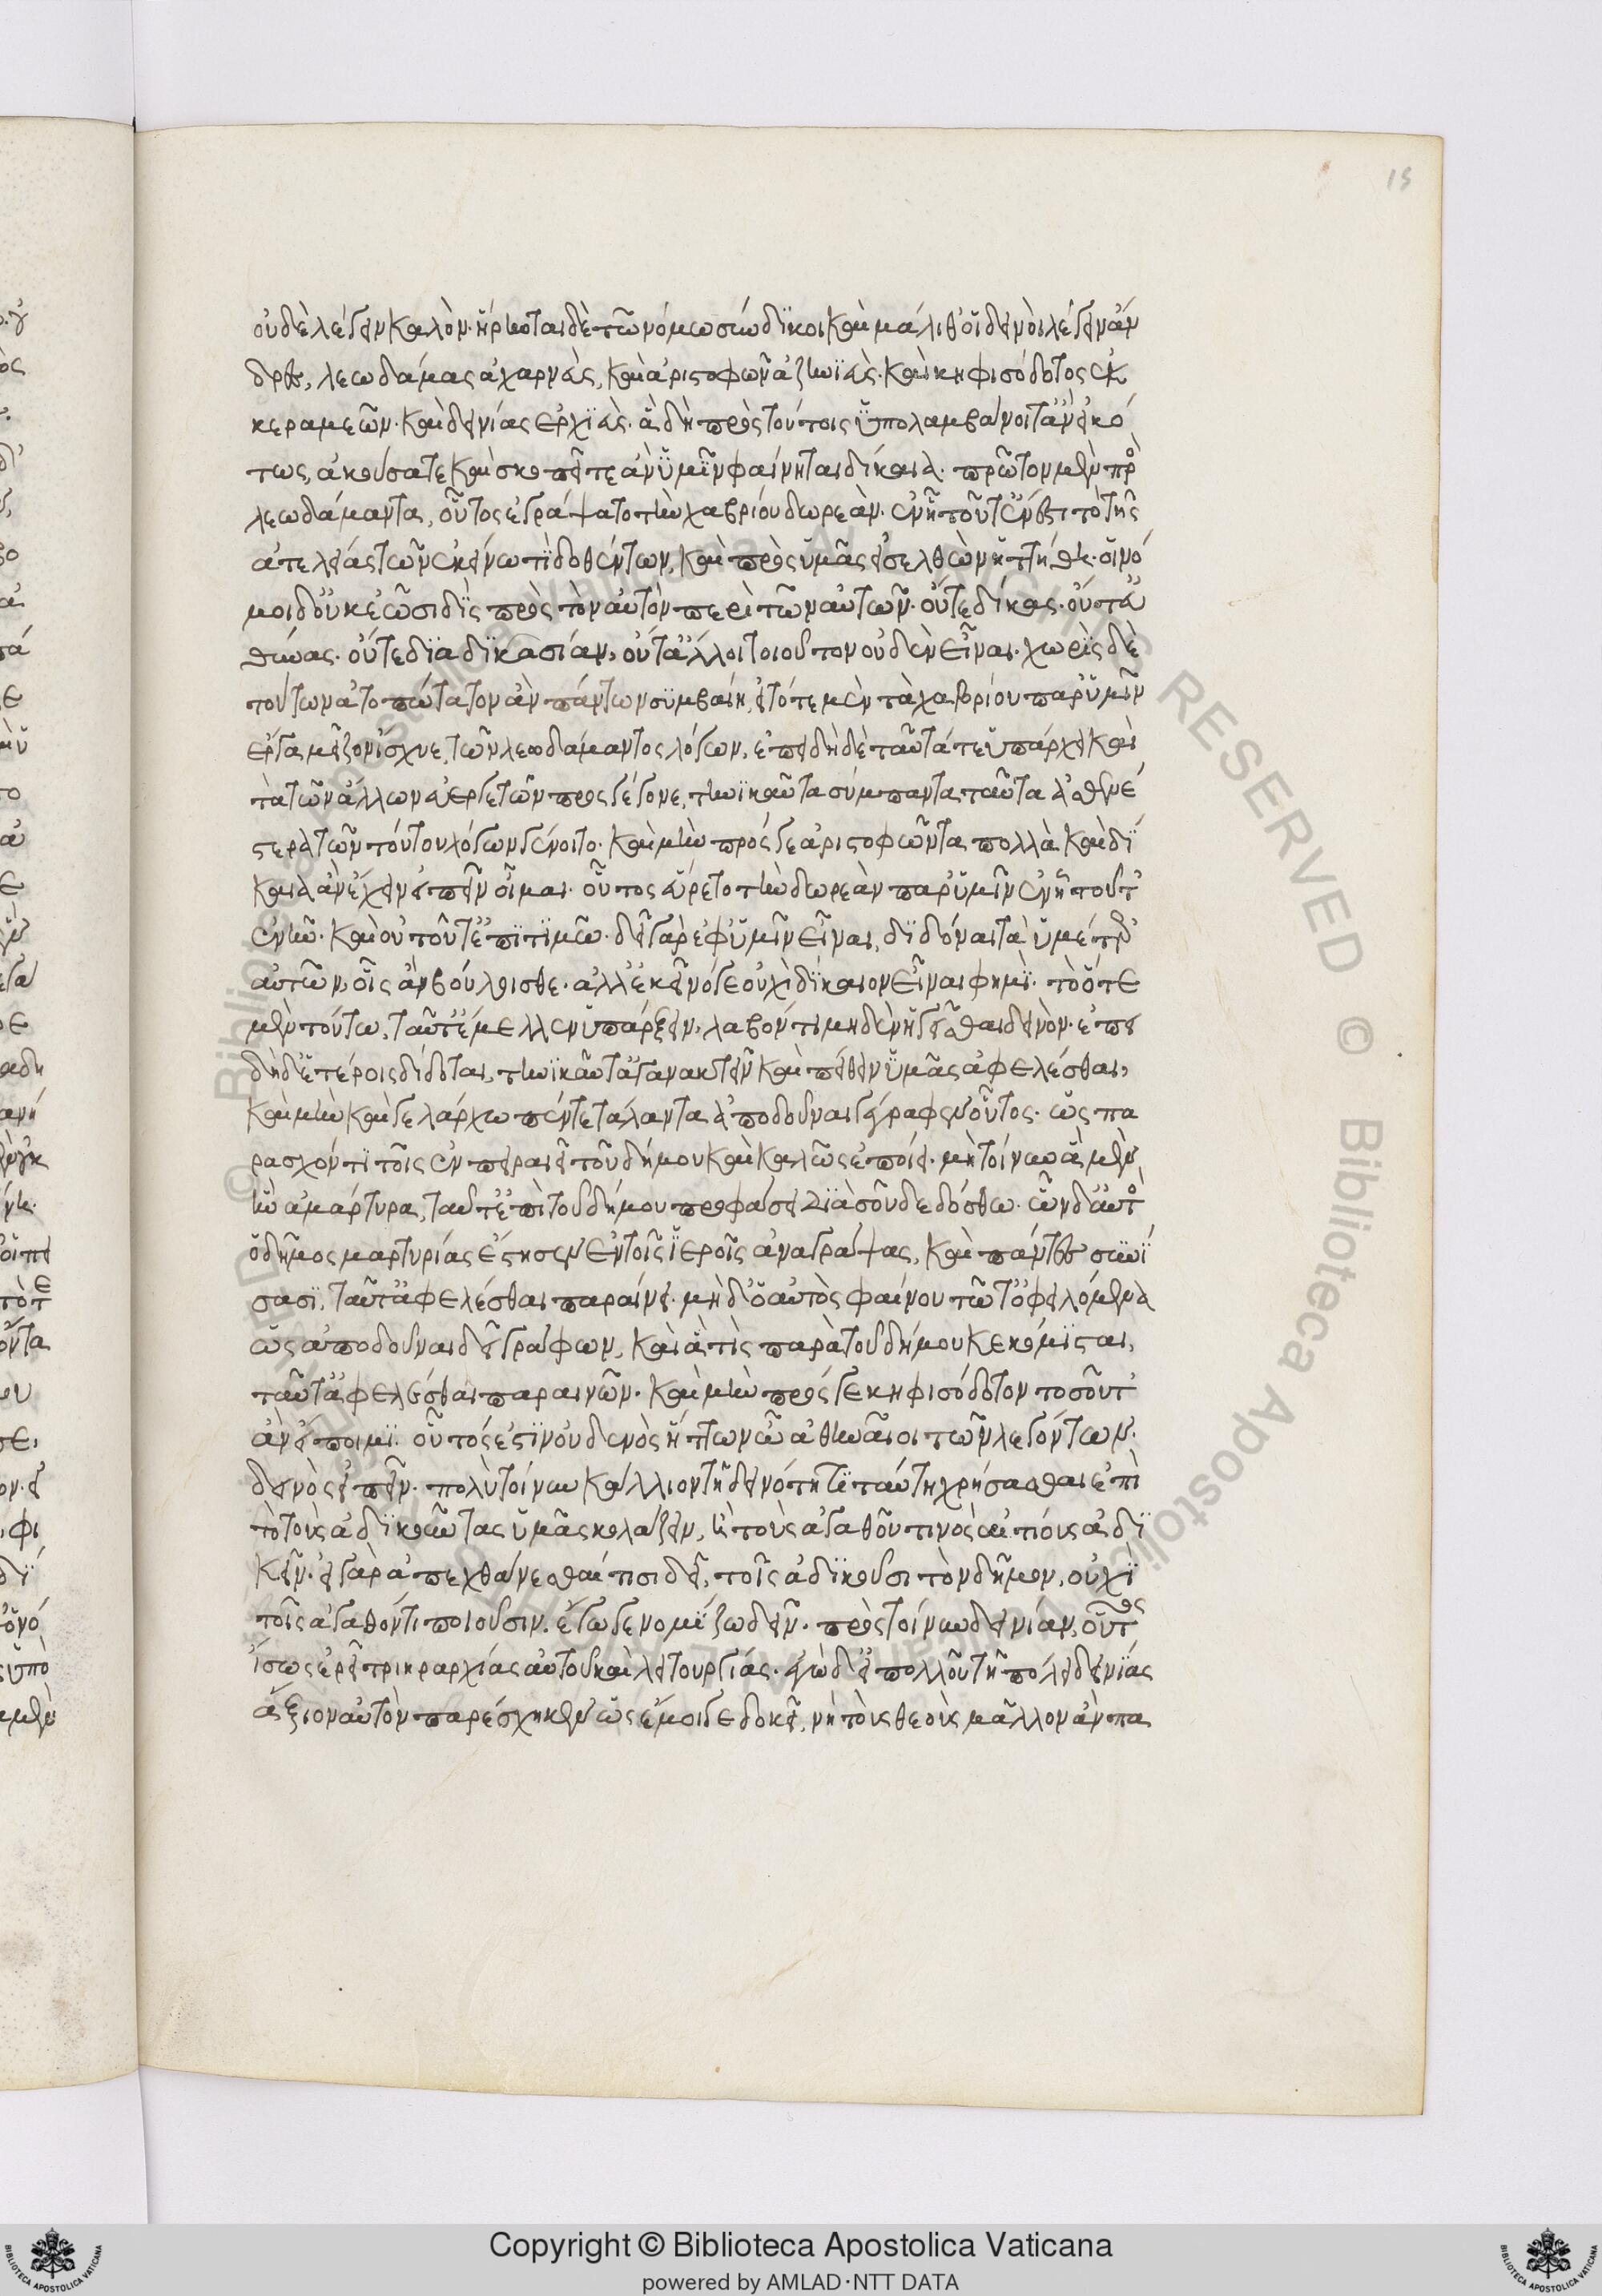 15
οὐδὲ λέγειν καλόν. ἥρηνται δὲ τῶ νόμω σύνδικοι καὶ μάλισθ' οἱ δεινοὶ λέγειν ἄν
δρες, λεωδάμας ἀχαρνεὺς, καὶ ἀριστοφῶν ἀζηνιεὺς. καὶ κηφισόδοτος ἐκ
κεραμεῶν. καὶ δεινίας ἐρχιεὺς. ἃ δὴ πρὸς τούτοις ὑπολαμβάνοιτ' ἂν εἰκό
τως, ἀκούσατε καὶ σκοπεῖτε ἂν ὑμῖν φαίνηται δίκαια. πρῶτον μὲν πρὸς
λεωδάμαντα, οὗτος ἐγράψατο τὴν χαβρίου δωρεὰν. ἐν ἧ τοῦτ' ἔνεστι τὸ τῆς
ἀτελείας τῶν ἐκείνω τὶ δοθέντων, καὶ πρὸς ὑμᾶς εἰσελθὼν ἡττήθη. οἱ νό
μοι δ' οὐκ ἐῶσι δὶς πρὸς τὸν αὐτὸν περὶ τῶν αὐτῶν. οὔτε δίκας. οὔτ' εὐ
θύνας. οὔτε διαδικασίαν, οὔτ' ἄλλο τοιοῦτον οὐδὲν εἶναι. χωρὶς δὲ
τούτων ἀτοπώτατον ἂν πάντων συμβαίη, εἰ τότε μὲν τὰ χαβρίου παρ' ὑμῖν
ἔργα μεῖζον ἴσχυε, τῶν λεωδάμαντος λόγων, ἐπειδὴ δὲ ταῦτά τε ὑπάρχει καὶ
τὰ τῶν ἄλλων εὐεργετῶν προσγέγονε, τηνικαῦτα σύμπαντα ταῦτα ἀσθενέ
στερα τῶν τούτου λόγων γένοιτο. καὶ μὴν πρός γε ἀριστοφῶντα πολλὰ καὶ δί
καια ἂν ἔχειν εἰπεῖν οἶμαι. οὗτος εὕρετο τὴν δωρεὰν παρ' ὑμῖν ἐν ἧ τοῦτ'
ἐνῆν. καὶ οὐ τοῦτ' ἐπιτιμῶ. δεῖ γὰρ ἐφ' ὑμῖν εἶναι, διδόναι τὰ ὑμέτερ'
αὐτῶν, οἷς ἂν βούλησθε. ἀλλ' ἐκεῖνό γε οὐχὶ δίκαιον εἶναι φημὶ. τὸ ὅτε
μὲν τούτω, ταῦτ' ἔμελλεν ὑπάρξειν, λαβόντι μηδὲν ἡγεῖσθαι δεινὸν. ἐπει
δὴ δ' ἑτέροις δέδοται, τηνικαῦτ' ἀγανακτεῖν καὶ πείθειν ὑμᾶς ἀφελέσθαι,
καὶ μὴν καὶ γελάρχω πέντε τάλαντα ἀποδοῦναι γέγραφεν οὗτος. ὡς πα
ρασχόντι τοῖς ἐν πειραιεῖ τοῦ δήμου καὶ καλῶς ἐποίει. μὴ τοίνυν ἃ μὲν
ἦν ἀμάρτυρα, ταῦτ' ἐπὶ τοῦ δήμου προφάσει διὰ σοῦ δεδόσθω. ὧν δ' αὐτὸς
ὁ δῆμος μαρτυρίας ἔστησεν ἐν τοῖς ἱεροῖς ἀναγράψας, καὶ πάντες συνί
σασι, ταῦτ' ἀφελέσθαι παραίνει. μὴ δ' ὁ αὐτὸς φαίνου τῶ τ' ὀφειλόμενα
ὡς ἀποδοῦναι δεῖ γράφων, καὶ ἅ τὶς παρὰ τοῦ δήμου κεκόμισται,
ταῦτ' ἀφελέσθαι παραινῶν. καὶ μὴν πρός γε κηφισόδοτον τοσοῦτ'
ἂν εἴποιμι. οὗτός ἐστιν οὐδενὸς ἧττων ὦ ἀθηναῖοι τῶν λεγόντων.
δεινὸς εἰπεῖν. πολὺ τοίνυν κάλλιον τῆ δεινότητι ταύτη χρῆσασθαι ἐπὶ
τὸ τοὺς ἀδικοῦντας ὑμᾶς κολάζειν, ἢ τοὺς ἀγαθοῦ τινὸς αἰτίους ἀδι
κεῖν. εἰ γὰρ ἀπεχθάνεσθαί τισι δεῖ, τοῖς ἀδικοῦσι τὸν δῆμον, οὐχὶ
τοῖς ἀγαθόν τι ποιοῦσιν. ἔγωγε νομίζω δεῖν. πρὸς τοίνυν δεινίαν, οὗτος
ἴσως ἐρεῖ τριηραρχίας αὐτοῦ καὶ λειτουργίας. ἐγὼ δ' εἰ πολλοῦ τῆ πόλει δεινίας
ἄξιον αὐτὸν παρέσχηκεν ὡς ἔμοιγε δοκεῖ, νὴ τοὺς θεοὺς μᾶλλον ἂν πα
Copyright © Biblioteca Apostolica Vaticana
powered by AMLAD·NTT DATA